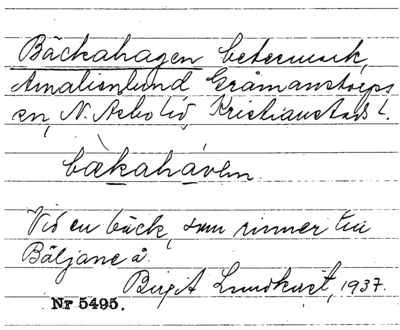 Bäckahagen betesmark,
Amalienlund Gråmanstorps
sn, N. Åsbo hd, Kristianstads l.
bækahàven.
Vid en bäck, som rinner till
Bäljane å.
Birgit Lundkvist, 1937.
Nr 5495.